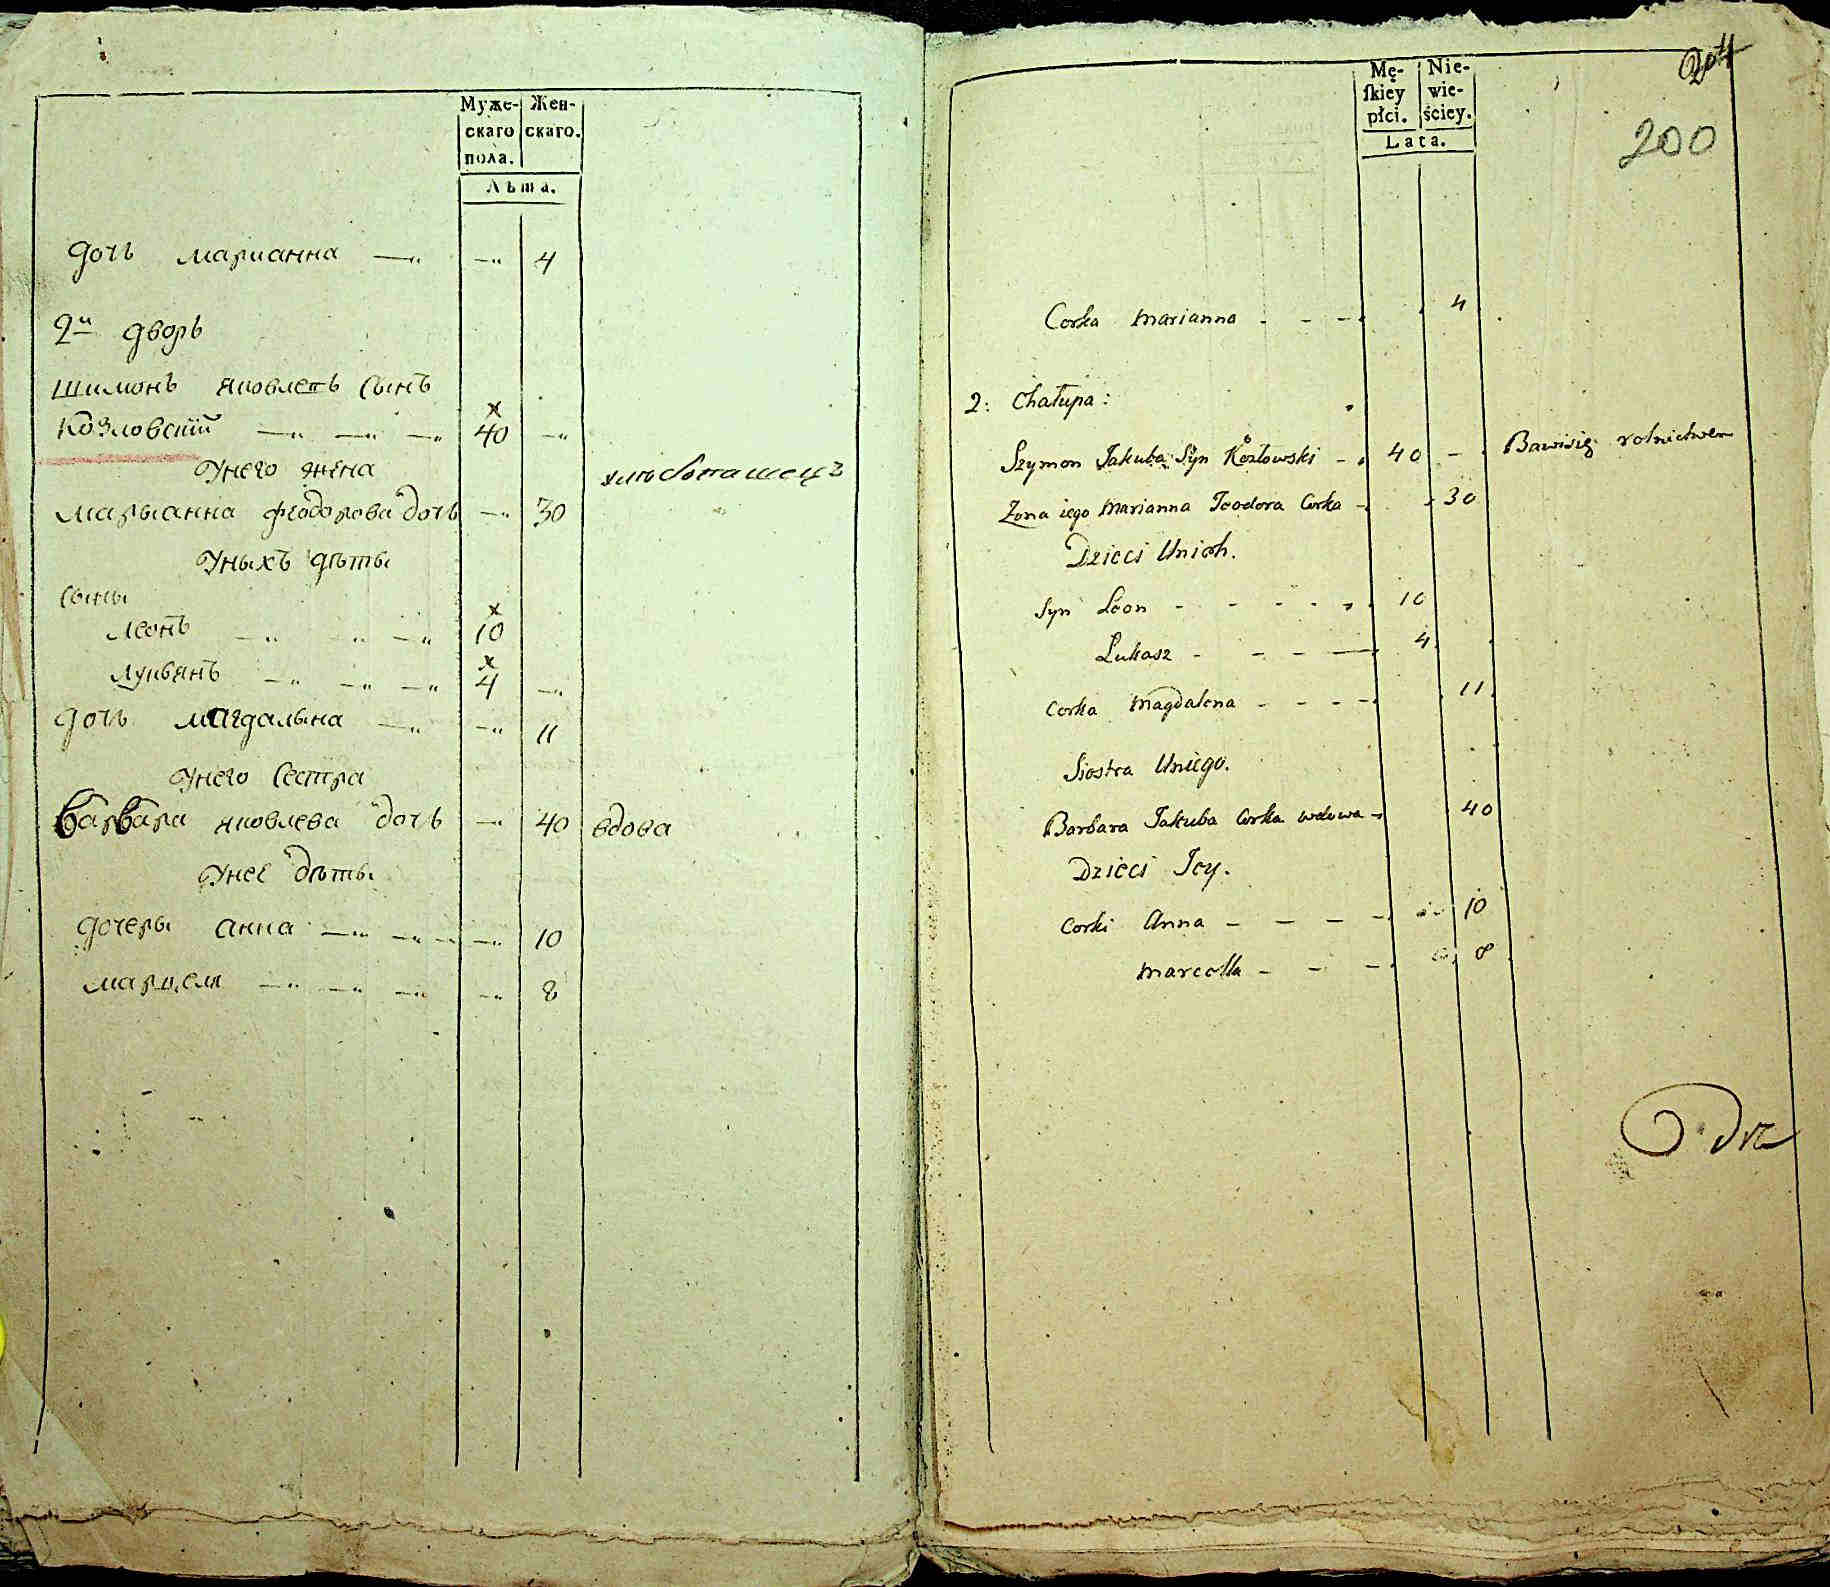 Муже- Жен-
скаго скаго.
пола.
Лѣта.
дочь марианна 4
2й дворъ
шимонъ яковлевъ сынъ
козловский 40
х
унего жена
хлебопашецъ
марыанна феодорова дочь 30
уныхъ дѣты
сыны
х
леонъ 10
х
лукьянъ 4
дочь магдалына 11
унего сестра
варвара яковлева дочь 40 вдова
унее дѣты
дочеры анна 10
марцеля 8
204
200
Mę- Nie-
ſkiey wie-
płci. ściey.
Lata.
Corka Marianna 4
2: Chałupa:
Szymon Jakuba Syn Kozłowski 40 Bawisię rolnictwem
Zona iego Marianna Teodora Corka 30
Dzieci Unich.
Syn Leon 10
Łukasz 4
Corka Magdalena 11
Siostra Uniego.
Barbara Jakuba Corka wdowa 40
Dzieci Jey.
Corki Anna 10
Marcella 8